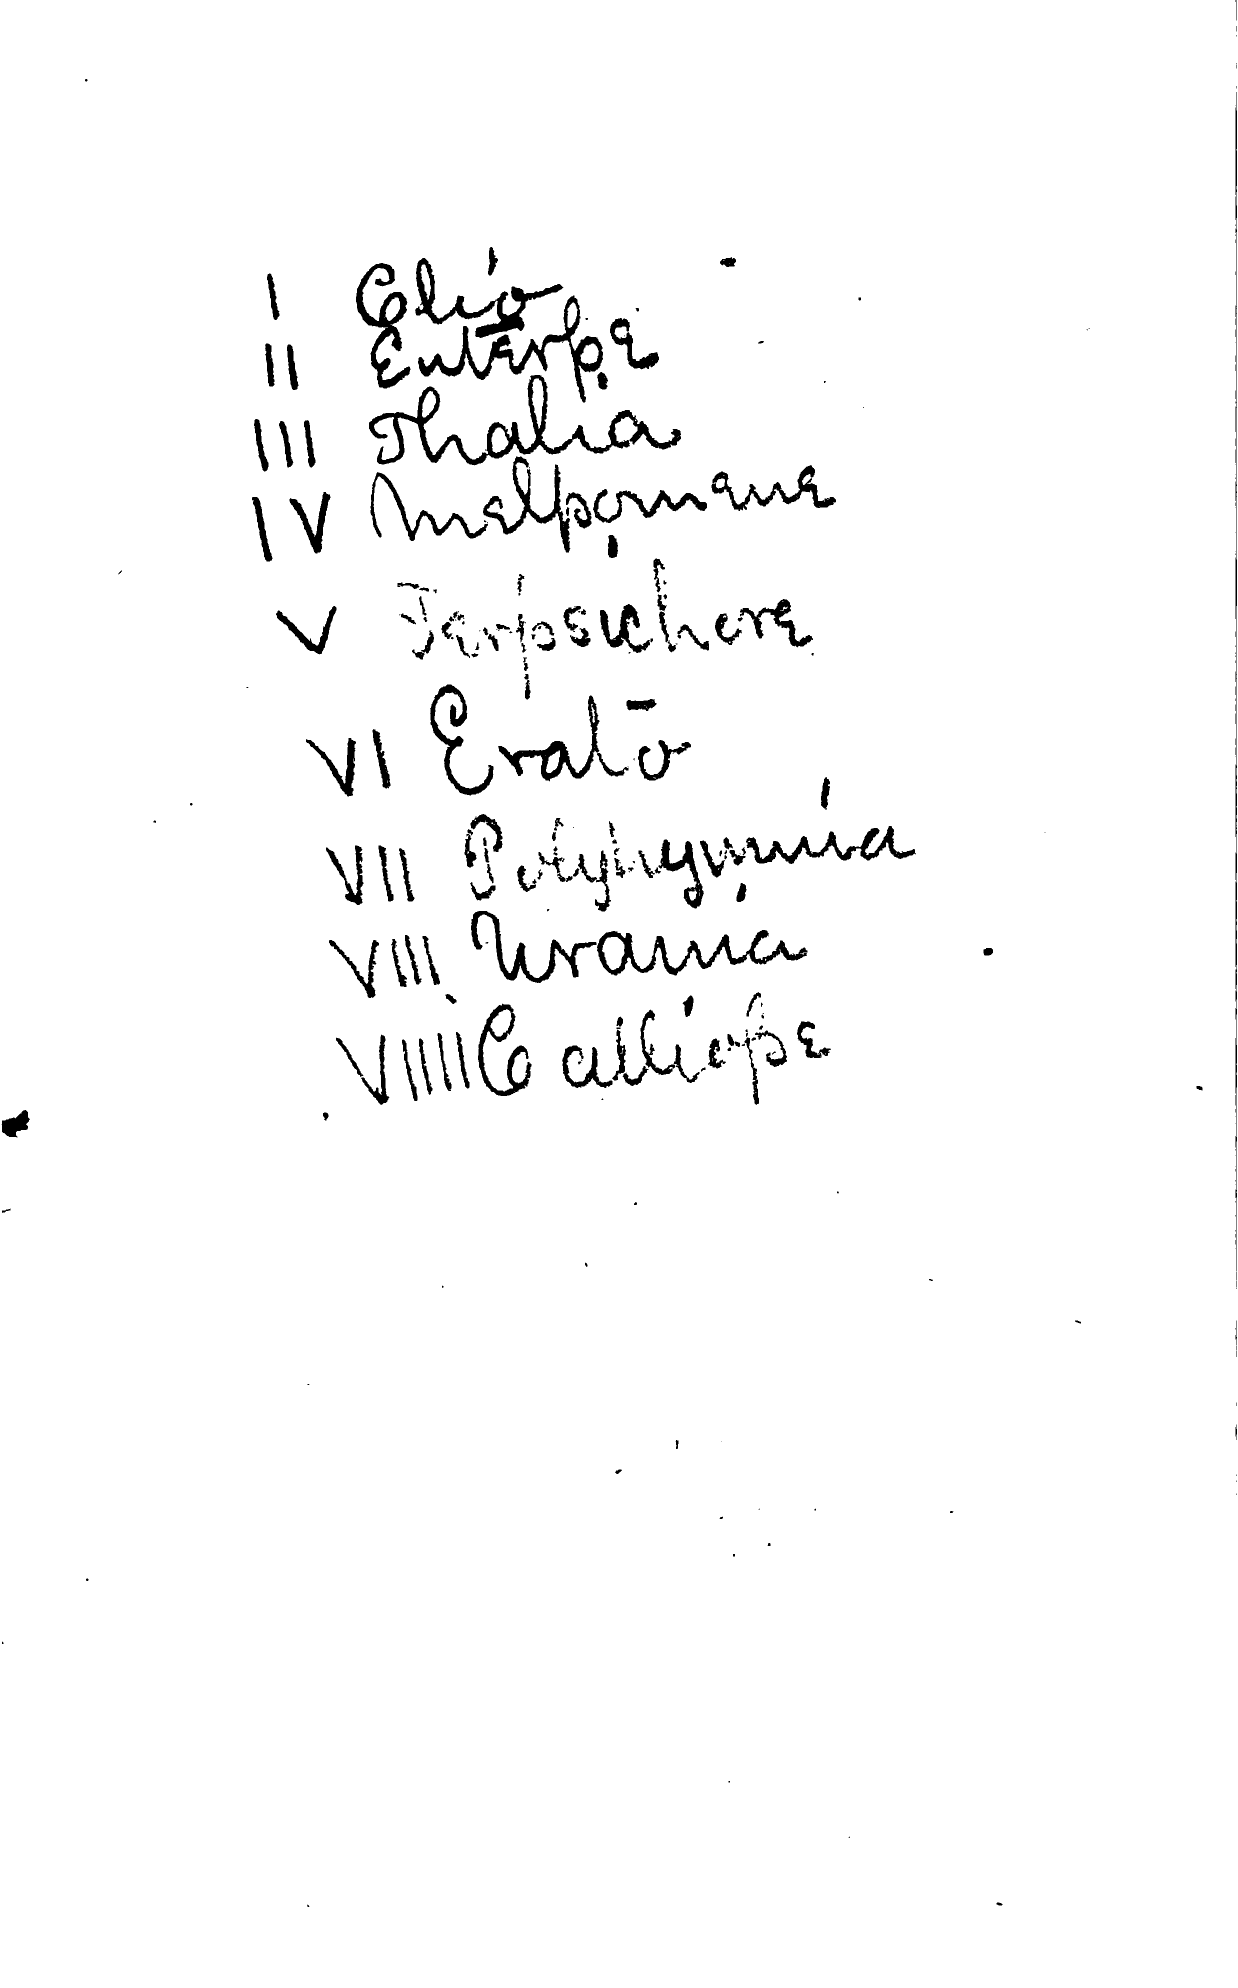 I Clio
II Euterpe
III Thalia
IV Melpomene
V Terpsichore
VI Erato
VII Polyhymnia
VIII Urania
VIIII Calliope